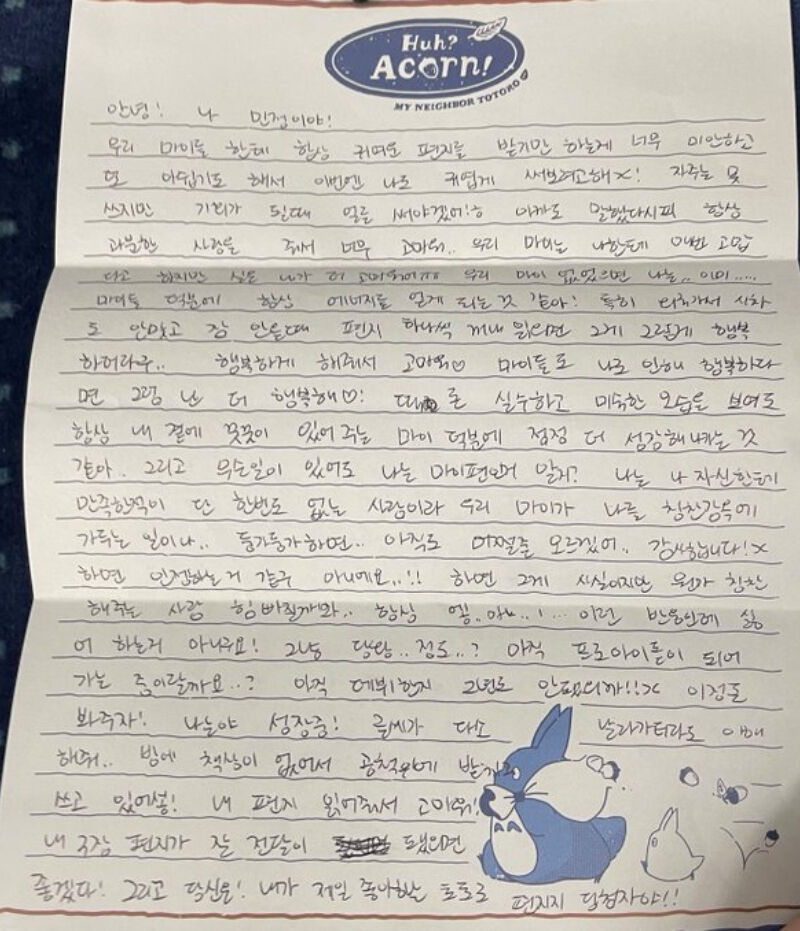 Huh?
Acorn!
MY NEIGHBOR TOTORO
안녕! 나 민정이야!
우리 마이들 한테 항상 귀여운 편지를 받기만 하는게 너무 미안하고
또 아쉽기도 해서 이번엔 나도 귀엽게 써보려고해ㅊ! 자주는 못
쓰지만 기회가 될때 얼른 써야겠어!ㅎ 아까도 말했다시피 항상
과분한 사랑을 줘서 너무 고마워.. 우리 마이는 나한테 매번 고맙
다고 하지만 실은 내가 더 고마워ㅠㅠ 우리 마이 없었으면 나는.. 이미.....
마이들 덕분에 항상 에너지를 얻게 되는 것 같아! 특히 외국가서 시차
도 안맞고 잠 안올때 편지 하나씩 꺼내 읽으면 그게 그렇게 행복
하더라구.. 행복하게 해줘서 고마워♡ 마이들도 나로 인해 행복하다
면 그럼 난 더 행복해♡! 때론 실수하고 미숙한 모습을 보여도
항상 내 곁에 꿋꿋이 있어 주는 마이 덕분에 점점 더 성장해나가는 것
같아. 그리고 무슨일이 있어도 나는 마이편인거 알지? 나는 나 자신한테
만족한적이 단 한번도 없는 사람이라 우리 마이가 나를 칭찬감옥에
가두는 일이나.. 둥가둥가하면.. 아직도 어쩔줄 모르겠어.. 감사합니다!ㅊ
하면 인정하는거 같구 아니에요..!! 하면 그게 사실이지만 뭔가 칭찬
해주는 사람 힘 빠질까봐.. 항상 엥..아니..!... 이런 반응인데 싫
어 하는거 아니구요! 그냥 당황..정도..? 아직 프로아이돌이 되어
가는 중이랄까요..? 아직 데뷔한지 2년도 안됐으니까!!ㅊ 이정돈
봐주자! 나는야 성장중! 글씨가 다소 날라가더라도 이해
해줘.. 방에 책상이 없어서 공책위에 받치고
쓰고 있어용! 내 편지 읽어줘서 고마워!
내 3장 편지가 잘 전달이 됐으면
좋겠다! 그리고 당신은! 내가 제일 좋아하는 토토로
편지지 당첨자야!!